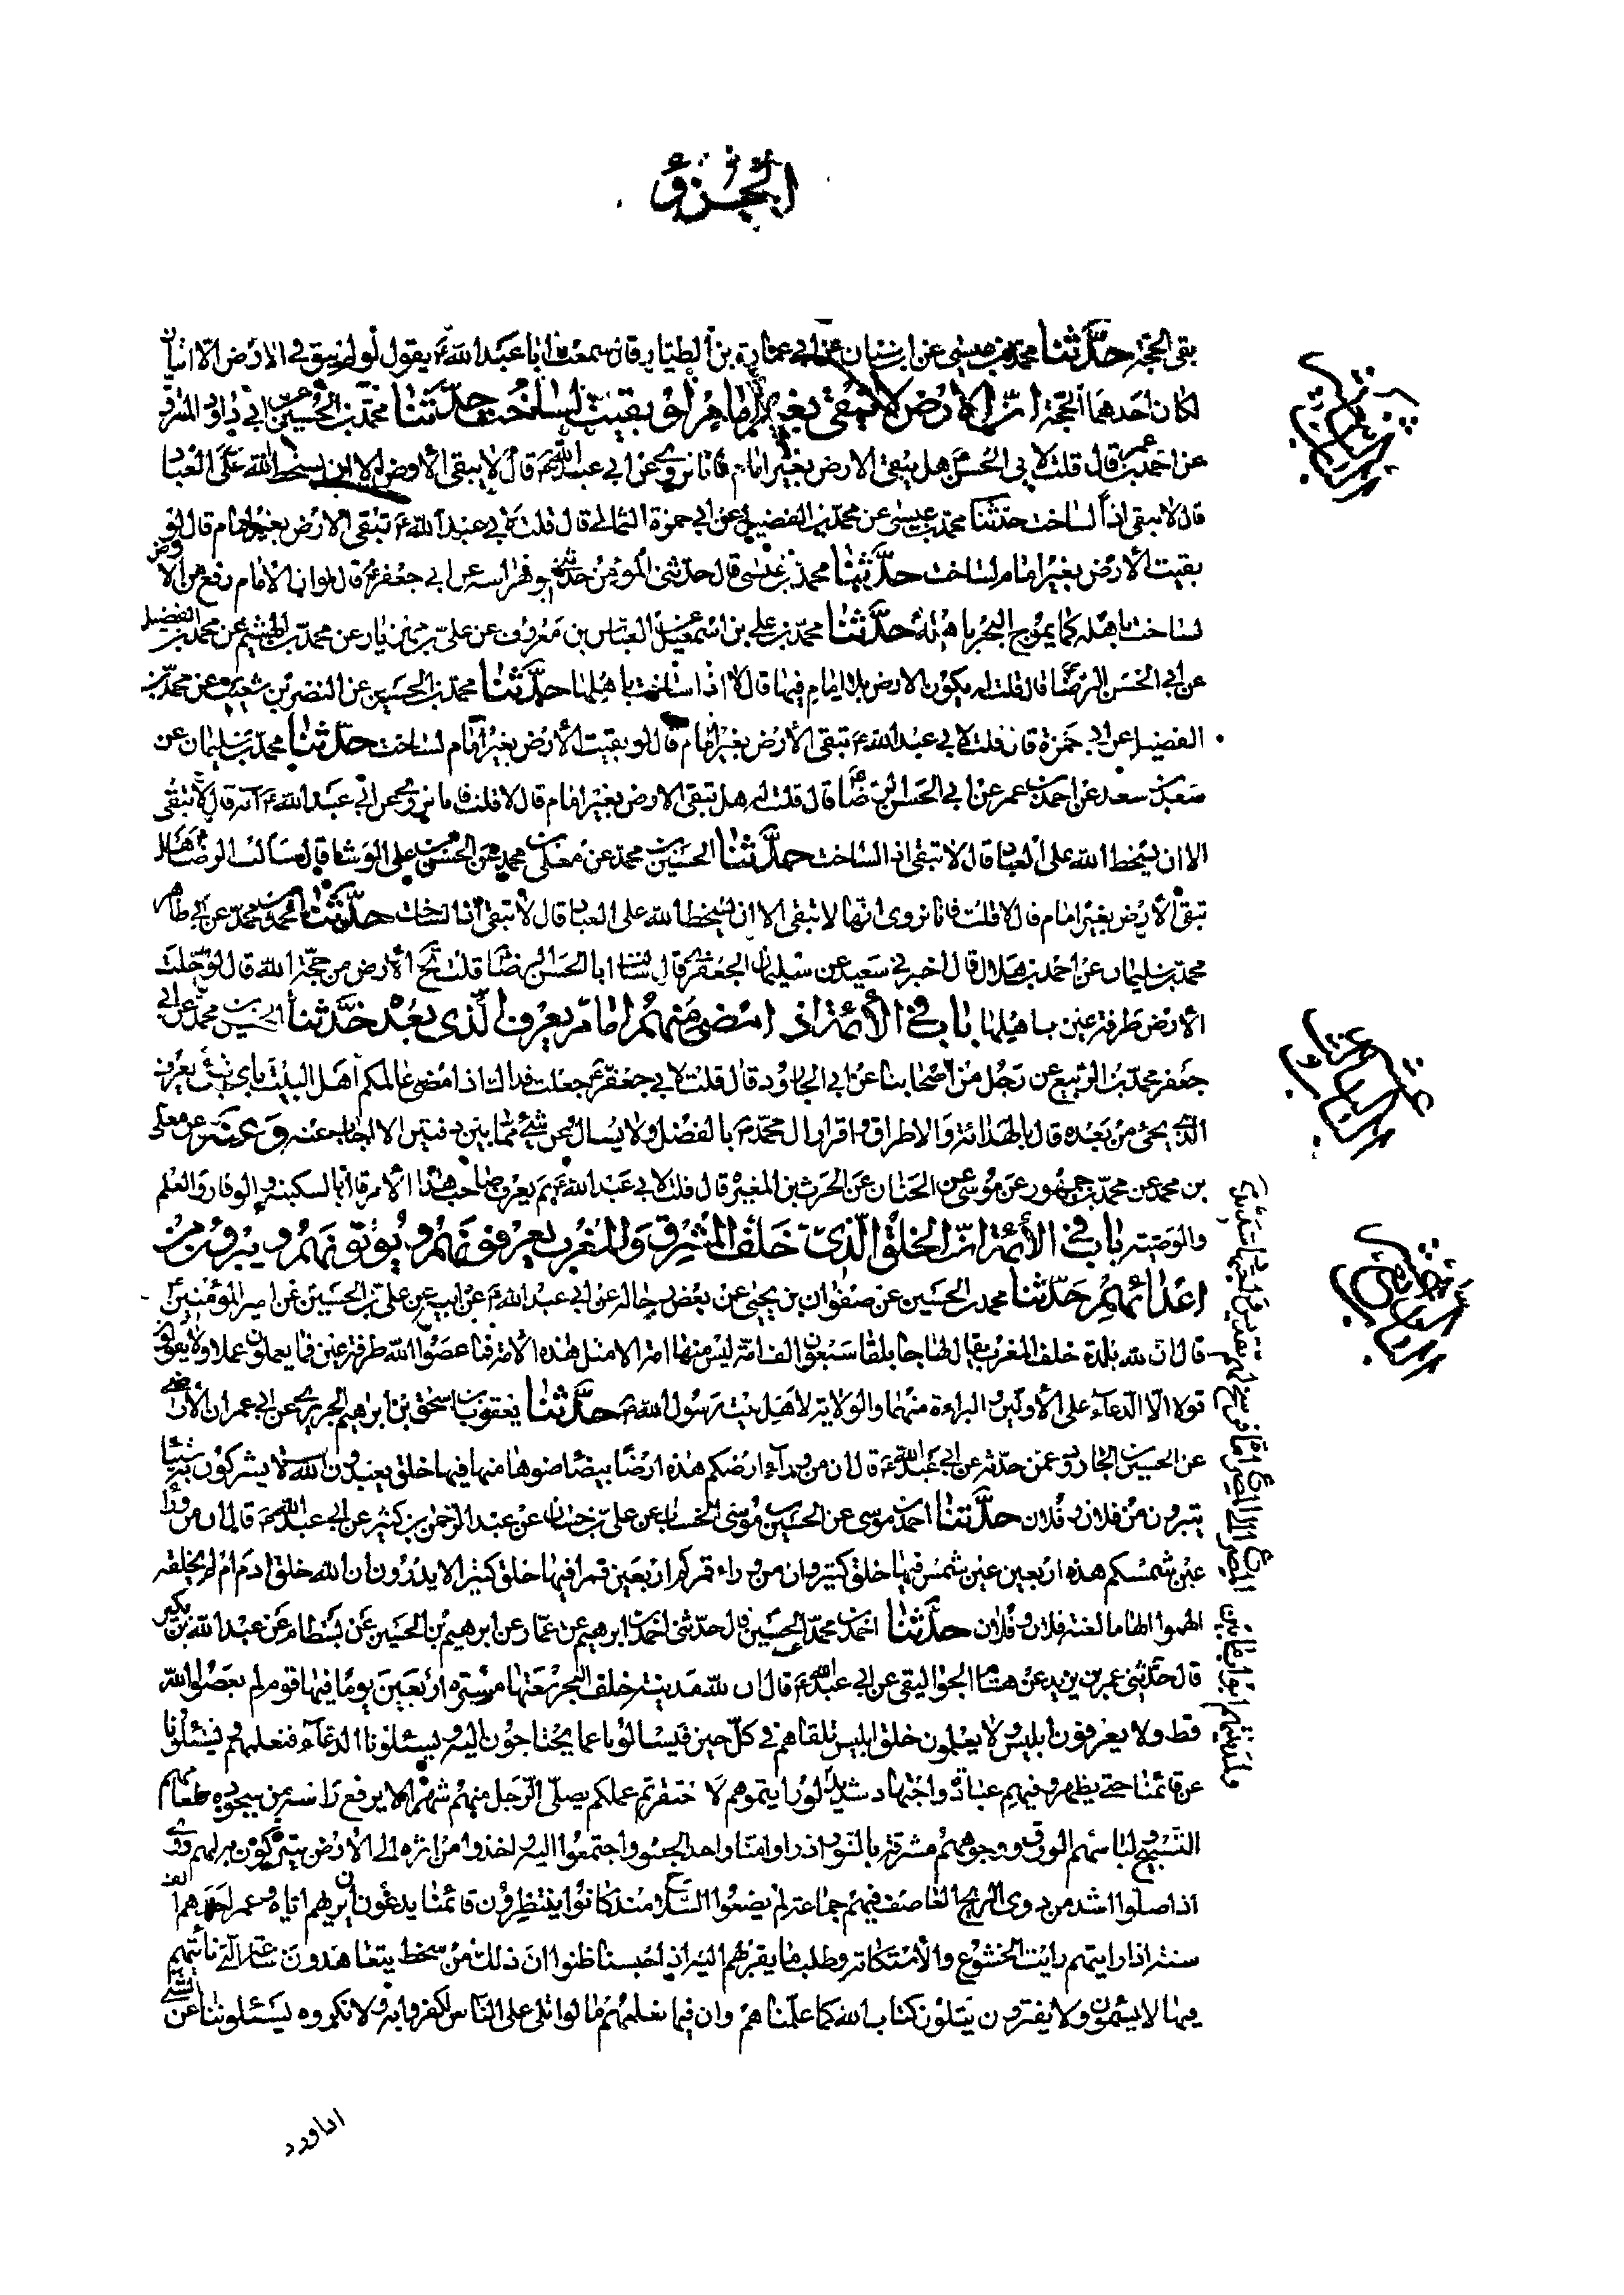 الجزؤ
بقى الحجة حدثنا محمد بن عيسى عن ابن سنان عن ابى عمارة بن الطيار قال سمعت ابا عبد الله ع يقول لو لم يبق فى الارض الا اثنان
لكان احدهما الحجة ان الارض لا تبقى بغير امام لو بقيت لساخت حدثنا محمد بن الحسين عن ابى داود المسترق
عن احمد بن عمر قال قلت لابى الحسن هل يبقى الارض بغير امام فانا نروى عن ابى عبد الله ع قال لا يبقى الارض الا ان يسخط الله على العباد
قال لا تبقى اذاً لساخت حدثنا محمد بن عيسى عن محمد بن الفضيل عن ابى حمزة الثمالى قال قلت لابى عبد الله ع تبقى الارض بغير امام قال لو
بقيت الأرض بغير امام لساخت حدثنا محمد بن عيسى قال حدثنى المؤمن حدثنى ابو هراسه عن ابى جعفر ع قال لو ان الامام رفع من الارض
لساخت باهله كما يموج البحر باهله حدثنا محمد بن على بن اسمعيل العباس بن معروف عن على بن مهزيار عن محمد بن الهيثم عن محمد بن الفضيل
عن ابى الحسن الرضا قال قلت له يكون الارض بلا امام فيها قال لا اذا لساخت باهلها حدثنا محمد بن الحسين عن النضر بن شعيب عن محمد بن
الفضيل عن ابى حمزة قال قلت لابى عبد الله ع تبقى الأرض بغير امام قال لو بقيت الأرض بغير امام لساخت حدثنا محمد بن سليمان عن
سعد بن سعد عن احمد بن عمر عن ابى الحسن الرضا قال قلت له هل تبقى الارض بغير امام قال لا قلت فانا نروى عن ابى عبد الله ع انه قال لا تبقى
الا ان يسخط الله على العباد قال لا تبقى اذا لساخت حدثنا الحسين بن محمد عن معلى بن محمد عن الحسن بن على الوشا قال سالت الرضا هل
تبقى الأرض بغير امام قال لا قلت فانا نروى انها لا تبقى الا ان يسخط الله على العباد قال لا تبقى اذا لساخت حدثنا محمد بن محمد عن ابى طاهر
محمد بن سليمان عن احمد بن هلال قال اخبرنى سعيد عن سليمان الجعفرى قال سالت ابا الحسن الرضا قلت تخلو الأرض من حجة الله قال لو خلت
الأرض طرفة عين لساخت باهلها باب فى الأئمة اذ امضى منهم امام يعرف الذى بعده حدثنا الحسين بن محمد عن ابى
جعفر محمد بن الربيع عن رجل من اصحابنا عن ابى الجارود قال قلت لابى جعفر ع جعلت فداك اذا مضى عالمكم اهل البيت باى شىء يعرف
الذى يجئ من بعده قال بالهداية والاطراق واقرار ال محمد ع بالفضل ولا يسال عن شئ مما بين دفتين الا اجاب عنه وعنه عن معلى
بن محمد عن محمد بن جمهور عن موسى عن الحنان عن الحرث بن المغيرة قال قلت لابى عبد الله ع بم يعرف صاحب هذا الأمر قال بالسكينة والوقار والعلم
والوصية باب فى الأئمة ان الخلق الذى خلف المشرق والمغرب يعرفونهم ويؤتونهم ويبرؤن من
اعدائهم حدثنا محمد بن الحسين عن صفوان بن يحيى عن بعض رجاله عن ابى عبد الله ع عن ابيه عن على بن الحسين عن امير المؤمنين
قال ان لله بلدة خلف المغرب يقال لها جابلقا سبعون الف امة ليس منها امة الا مثل هذه الأمة فما عصوا الله طرفة عين فما يعملون عملا ولا يقولون
قولا الا الدعاء على الأولين والبراءة منهما والولاية لأهل بيت رسول الله ص حدثنا يعقوب بن اسحق بن ابرهيم الجريرى عن ابى عمران الأرمنى
عن الحسين بن الجارود عمن حدثه عن ابى عبد الله ع قال ان من وراء ارضكم هذه ارضا بيضا ضوها منها فيها خلق يعبدون الله لا يشركون به شيئا
يتبرون من فلان وفلان حدثنا احمد بن موسى عن الحسين بن موسى الخشاب عن على بن حسان عن عبد الرحمن بن كثير عن ابى عبد الله ع قال ان من وراء
عين شمسكم هذه اربعين عين شمس فيها خلق كثير وان من وراء قمركم اربعين قمرا فيها خلق كثير لا يدرون ان الله خلق ادم ام لم يخلقه
الهموا الهاما لعنة فلان وفلان حدثنا احمد بن محمد بن الحسين قال حدثنى احمد بن ابرهيم عن عمار عن ابرهيم بن الحسين عن بسطام عن عبد الله بن بكير
قال حدثنى عمر بن يزيد عن هشام الجواليقى عن ابى عبد الله ع قال ان لله مدينة خلف البحر سعتها مسيرة اربعين يوما فيها قوم لم يعصوا الله
قط ولا يعرفون ابليس ولا يعلمون خلق ابليس نلقاهم فى كل حين فيسالونا عما يحتاجون اليه ويسئلونا الدعاء فنعلمهم ويسئلونا
عن قائمنا حتى يظهر وفيهم عبادة واجتهاد شديد لو رايتموهم لاحتقرتم عملكم يصلى الرجل منهم شهرا لا يرفع راسه من سجوده طعامهم
التسبيح لباسهم الورق ووجوههم مشرقة بالنور اذ راوا منا واحدا لحسوه واجتمعوا اليه اخذوا من اثره الى الأرض يتبركون به لهم دوى
اذا صلوا اشد من دوى الريح العاصف فيهم جماعة لم يضعوا السلاح منذ كانوا ينتظرون قائمنا يدعون ان يريهم اياه وعمر احدهم الف
سنة اذا رايتهم رايت الخشوع والأستكانة وطلب ما يقربهم اليه اذا احبسنا ظنوا ان ذلك من سخط يتعاهدون ساعة التى ناتيهم
فيها لا يسئمون ولا يفترون يتلون كتاب الله كما علمناهم وان فيما نعلمهم ما لو تلى على الناس لكفروا به ولانكروه يسئلوننا عن الشئ
اذا ورد